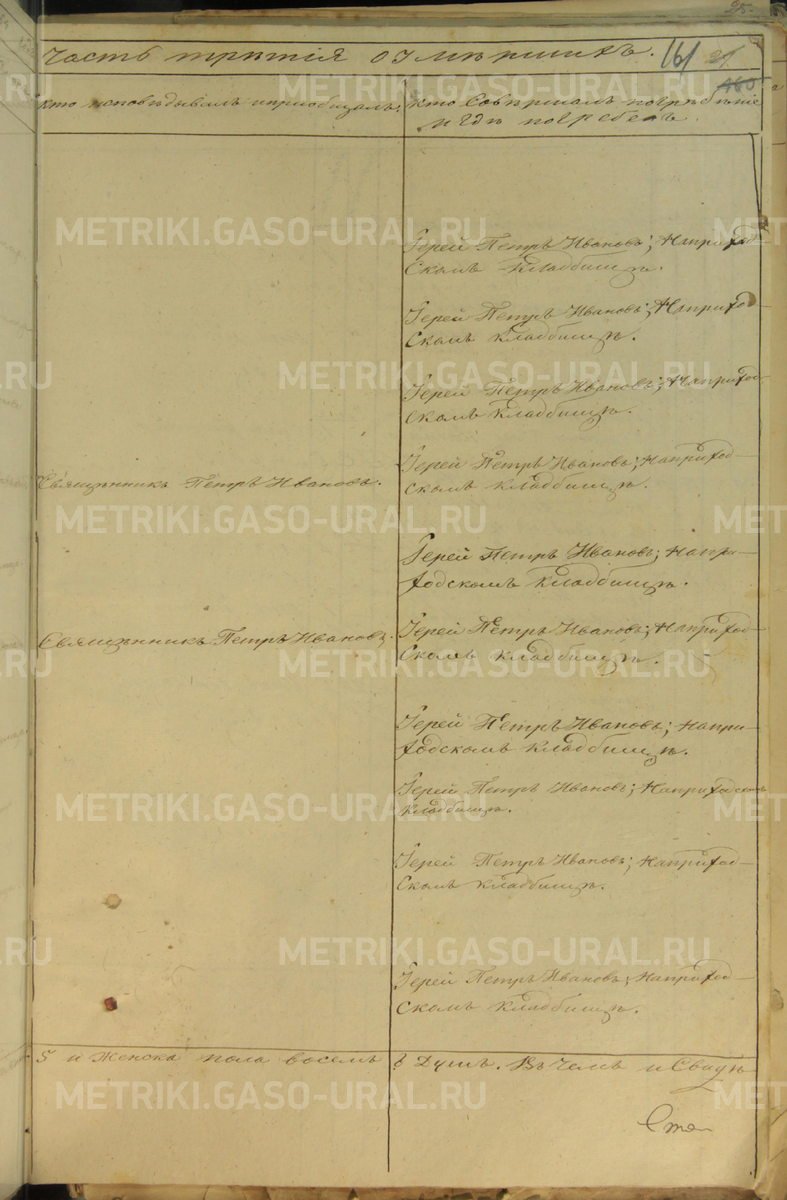 25.
Часть третія о умершихъ. 161 21
160
кто исповѣдывалъ и пріобщалъ: кто Совершалъ погребѣніе
и гдѣ погребенъ.
Іерей Петръ Ивановъ; На приход-
Скомъ Кладбищѣ.
Іерей Петръ Ивановъ; На приход-
Скомъ Кладбищѣ.
Іерей Петръ Ивановъ; На приход-
Скомъ Кладбищѣ.
Іерей Петръ Ивановъ; На приход-
Священникъ Петръ Ивановъ.
Скомъ Кладбищѣ.
Іерей Петръ Ивановъ; На при-
ходскомъ Кладбищѣ.
Священникъ Петръ Ивановъ;
Іерей Петръ Ивановъ; На приход-
Скомъ Кладбищѣ.
Іерей Петръ Ивановъ; На при-
ходскомъ Кладбищѣ.
Іерей Петръ Ивановъ; На приходскомъ
Кладбищѣ.
Іерей Петръ Ивановъ; На приход-
Скомъ Кладбищѣ.
Іерей Петръ Ивановъ; На приход-
Скомъ Кладбищѣ.
5 и Женска пола восемь 8 Душъ. Въ Чемъ и Свидѣ
METRIKI.GASO-URAL.RU